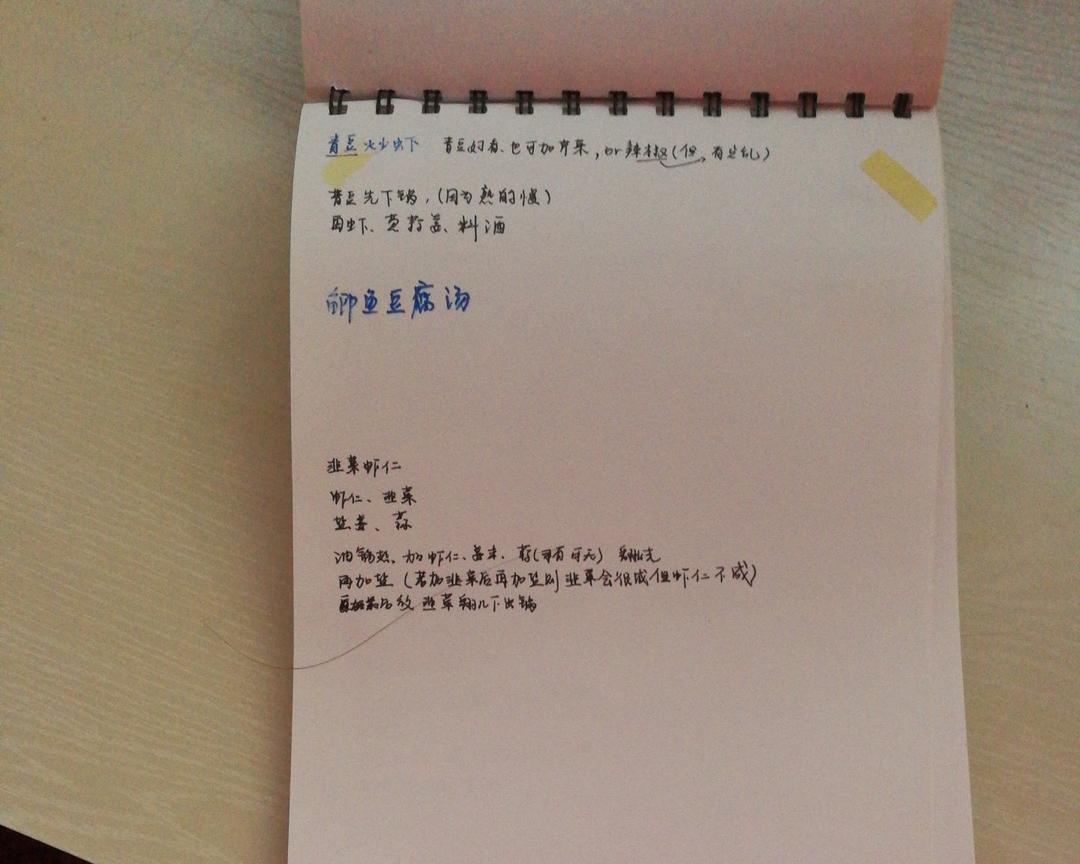 青豆火少虾 青豆如有、也可加芹菜, or 辣椒(但, 有些乱)
青豆先下锅,(因为熟的慢)
再虾、蒜姜、料酒
鲫鱼豆腐汤
韭菜虾仁
虾仁、韭菜
盐姜、蒜
油锅热, 加虾仁、姜末、蒜(可有可无) 翻炒
再加盐 (若加韭菜后再加盐则韭菜会很咸但虾仁不咸)
最后放韭菜翻几下出锅